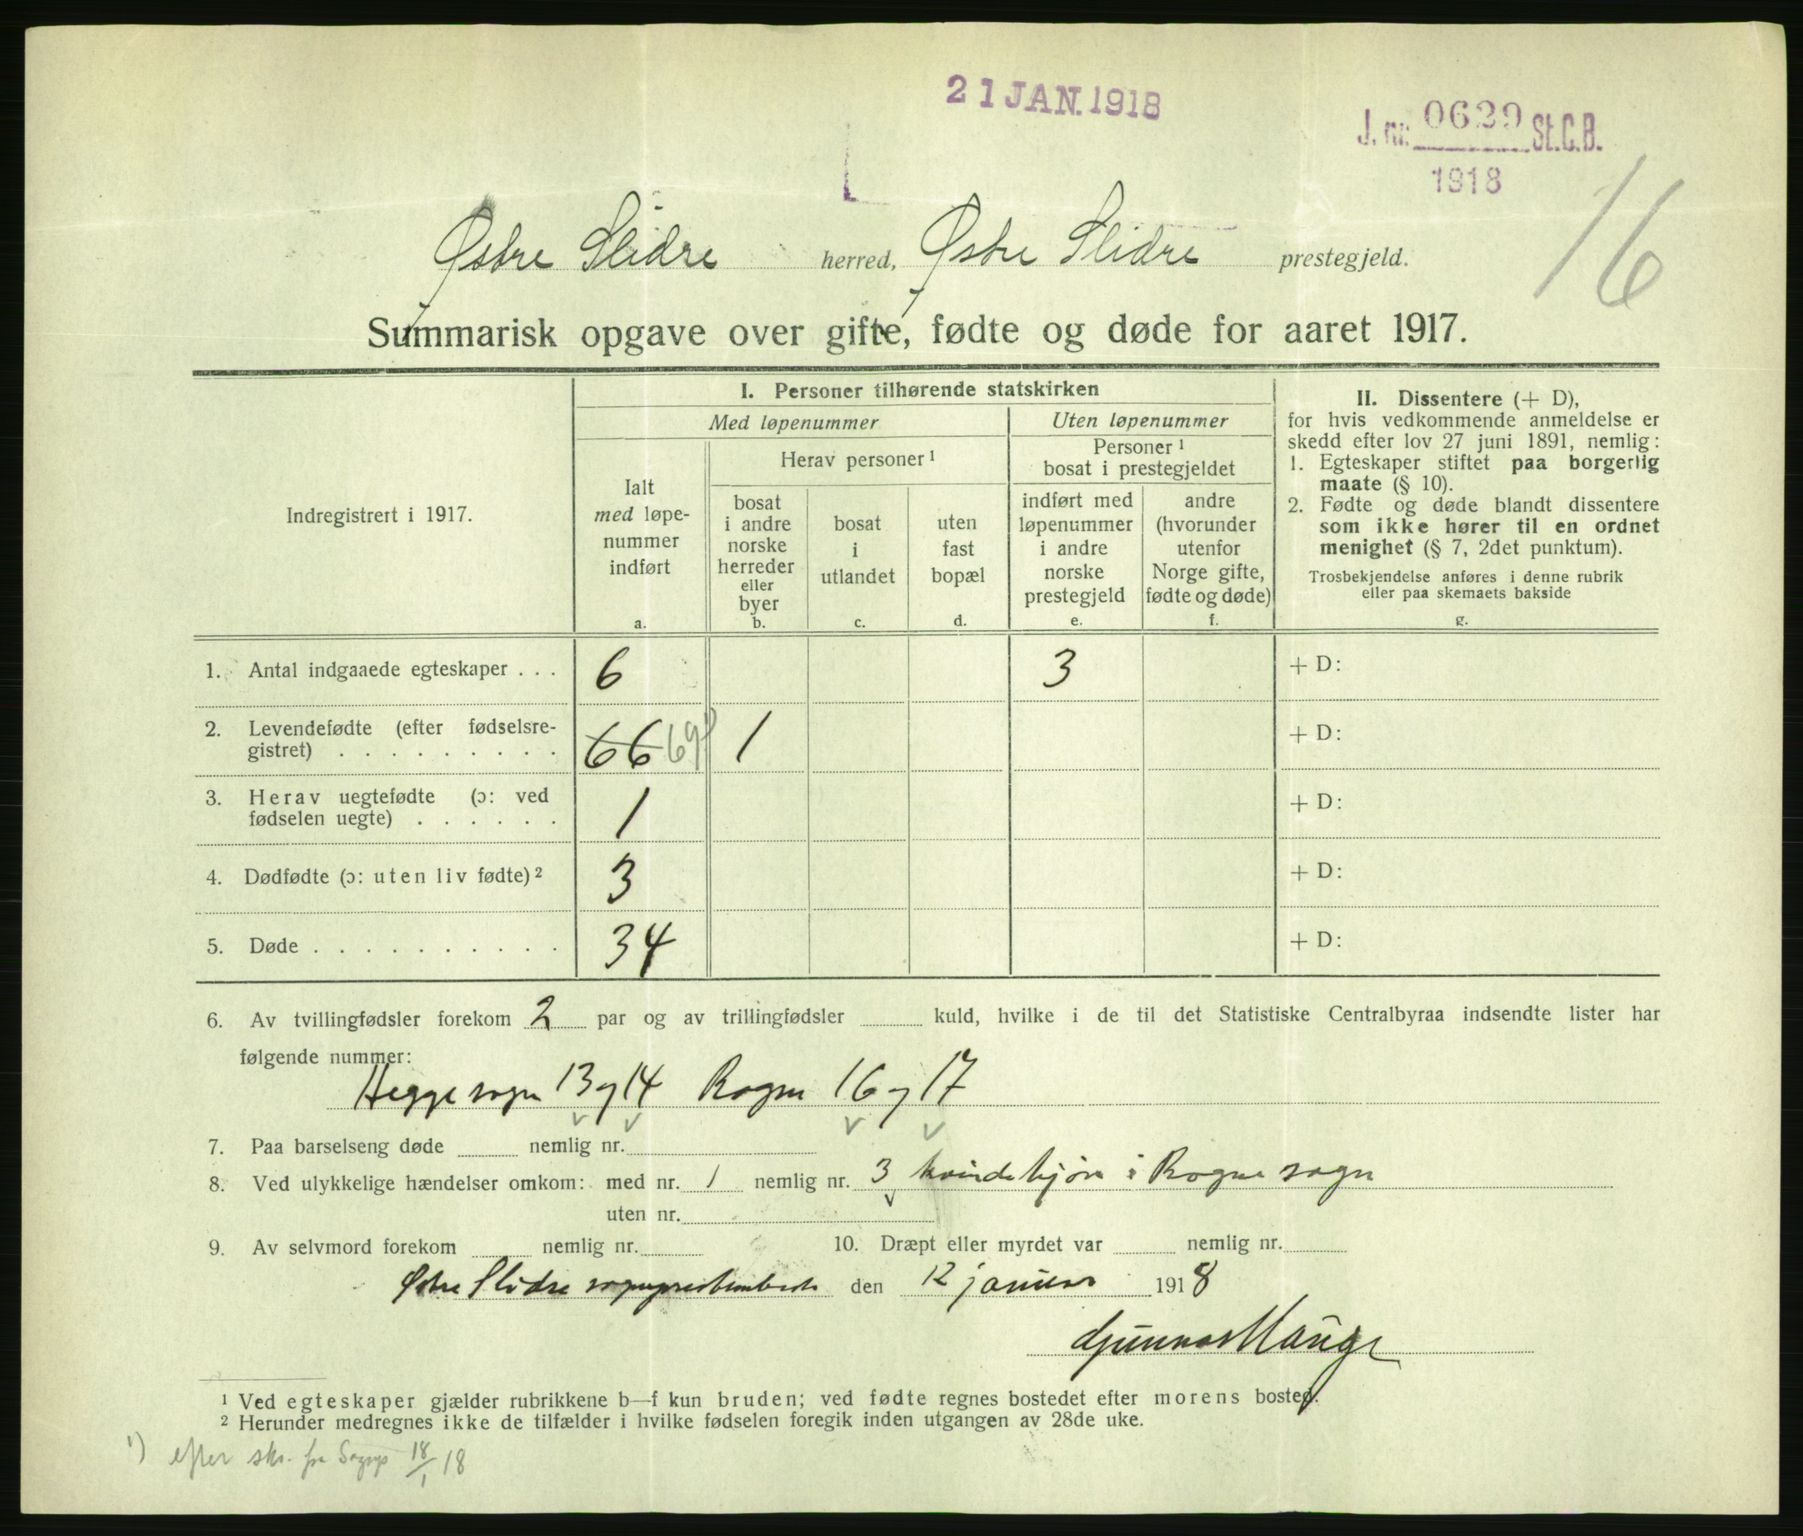 21 JAN. 1918
J. nr. 0629 St.C.B.
1918
16
Østre Slidre herred, Østre Slidre prestegjeld.
Summarisk opgave over gifte, fødte og døde for aaret 1917.
Indregistrert i 1917.
I. Personer tilhørende statskirken
Med løpenummer
Uten løpenummer
Ialt
med løpe-
nummer
indført
a.
Herav personer ¹
bosat
i andre
norske
herreder
eller
byer
b.
bosat
i
utlandet
c.
uten
fast
bopæl
d.
Personer ¹
bosat i prestegjeldet
indført med
løpenummer
i andre
norske
prestegjeld
e.
andre
(hvorunder
utenfor
Norge gifte,
fødte og døde)
f.
II. Dissentere (+ D),
for hvis vedkommende anmeldelse er
skedd efter lov 27 juni 1891, nemlig:
1. Egteskaper stiftet paa borgerlig
maate (§ 10).
2. Fødte og døde blandt dissentere
som ikke hører til en ordnet
menighet (§ 7, 2det punktum).
Trosbekjendelse anføres i denne rubrik
eller paa skemaets bakside
g.
1. Antal indgaaede egteskaper . . . 6 3 + D:
2. Levendefødte (efter fødselsre-
gistret) . . . . . . . . . 66 69 1) 1 + D:
3. Herav uegtefødte (ɔ: ved
fødselen uegte) . . . . . . 1 + D:
4. Dødfødte (ɔ: uten liv fødte) ² 3 + D:
5. Døde . . . . . . . . . . 34 + D:
6. Av tvillingfødsler forekom 2 par og av trillingfødsler kuld, hvilke i de til det Statistiske Centralbyraa indsendte lister har
følgende nummer:
Hegge sogn 13 og 14 Rogne 16 og 17
7. Paa barselseng døde nemlig nr.
8. Ved ulykkelige hændelser omkom: med nr. 1 nemlig nr. 3 kvindekjøn i Rogne sogn
uten nr.
9. Av selvmord forekom nemlig nr. 10. Dræpt eller myrdet var nemlig nr.
Østre Slidre sogneprestembede den 12 januar 1918
Gunnar Hauge
¹ Ved egteskaper gjælder rubrikkene b—f kun bruden; ved fødte regnes bostedet efter morens bosted.
² Herunder medregnes ikke de tilfælder i hvilke fødselen foregik inden utgangen av 28de uke.
1) efter skr. fra Sogepr 18/1 18